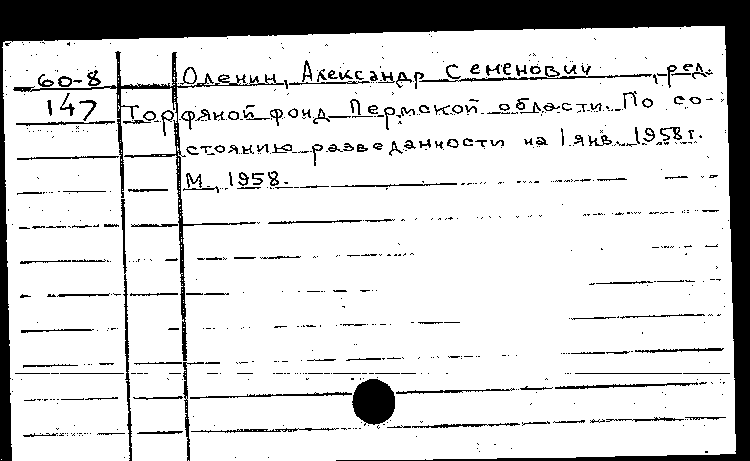 60-8 Оленин, Александр Семенович, ред.
147 Торфяной фонд Пермской области. По со-
стоянию разведанности на 1 янв. 1958 г.
М., 1958.